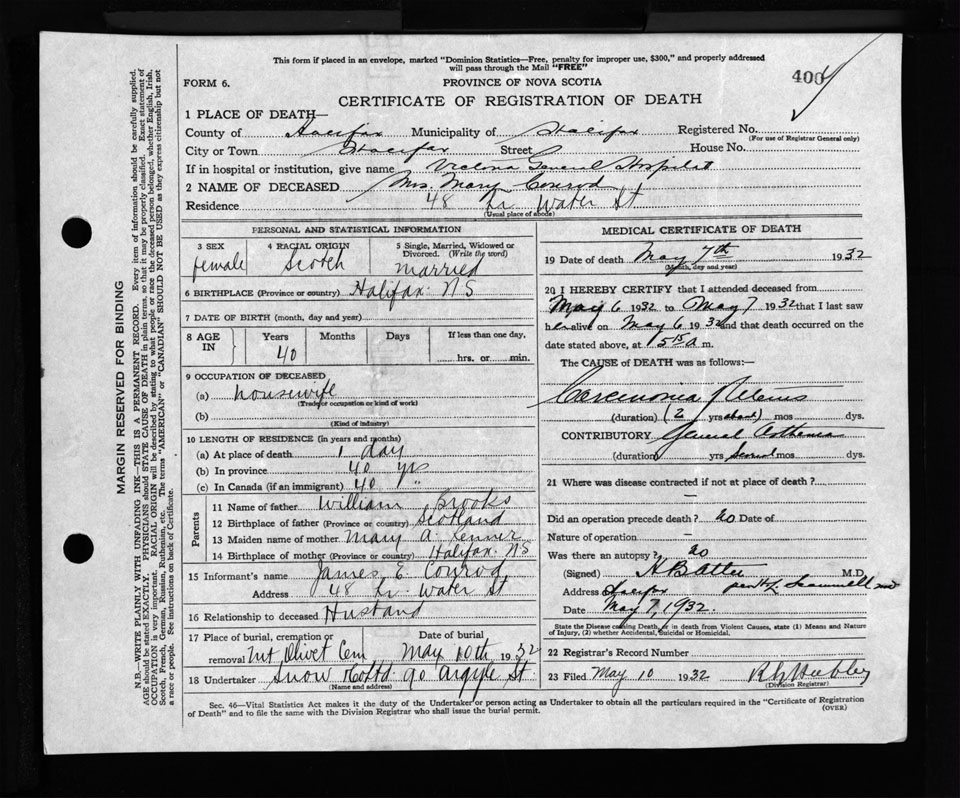 This form if placed in an envelope, marked "Dominion Statistics—Free, penalty for improper use, $300," and properly addressed
will pass through the Mail "FREE"
FORM 6.
PROVINCE OF NOVA SCOTIA
400
CERTIFICATE OF REGISTRATION OF DEATH
1 PLACE OF DEATH—
County of Halifax Municipality of Halifax Registered No.
(For use of Registrar General only)
City or Town Halifax Street House No.
If in hospital or institution, give name Victoria General Hospital
2 NAME OF DECEASED Mrs. Mary Conrod
Residence 48 Lr Water St
(Usual place of abode)
PERSONAL AND STATISTICAL INFORMATION
3 SEX female
4 RACIAL ORIGIN Scotch
5 Single, Married, Widowed or Divorced. (Write the word) married
6 BIRTHPLACE (Province or country) Halifax NS
7 DATE OF BIRTH (month, day and year)
8 AGE IN Years 40 Months Days If less than one day, hrs. or min.
9 OCCUPATION OF DECEASED
(a) housewife
(Trade or occupation or kind of work)
(b)
(Kind of industry)
10 LENGTH OF RESIDENCE (in years and months)
(a) At place of death 1 day
(b) In province 40 yrs
(c) In Canada (if an immigrant) 40 "
Parents
11 Name of father William Brooks
12 Birthplace of father (Province or country) Scotland
13 Maiden name of mother Mary A.
14 Birthplace of mother (Province or country) Halifax NS
15 Informant's name James E. Conrod
Address 48 Lr Water St
16 Relationship to deceased Husband
17 Place of burial, cremation or removal Mt Olivet Cem
Date of burial May 10th 1932
18 Undertaker Snow & Co Ltd 90 Argyle St
(Name and address)
MEDICAL CERTIFICATE OF DEATH
19 Date of death May 7th 1932
(Month, day and year)
20 I HEREBY CERTIFY that I attended deceased from
May 6 1932 to May 7 1932 that I last saw
her alive on May 6 1932 and that death occurred on the
date stated above, at 1 5 15 A m.
The CAUSE of DEATH was as follows:—
Carcinoma Uterus
(duration) (2 yrs about) mos dys.
CONTRIBUTORY General Asthenia
(duration) yrs several mos dys.
21 Where was disease contracted if not at place of death?
—
Did an operation precede death? No Date of
Nature of operation —
Was there an autopsy? No
(Signed) H B Atlee M.D.
Address Halifax
Date May 7, 1932.
State the Disease causing Death, or in death from Violent Causes, state (1) Means and Nature of Injury, (2) whether Accidental, Suicidal or Homicidal.
22 Registrar's Record Number
23 Filed May 10 1932
(Division Registrar)
Sec. 46—Vital Statistics Act makes it the duty of the Undertaker or person acting as Undertaker to obtain all the particulars required in the "Certificate of Registration
of Death" and to file the same with the Division Registrar who shall issue the burial permit.
(OVER)
MARGIN RESERVED FOR BINDING
N.B.—WRITE PLAINLY WITH UNFADING INK—THIS IS A PERMANENT RECORD. Every item of information should be carefully supplied.
AGE should be stated EXACTLY. PHYSICIANS should STATE CAUSE OF DEATH in plain terms, so that it may be properly classified. Exact statement of
OCCUPATION is very important. RACIAL ORIGIN will be described by stating to what people or race the deceased person belonged, whether English, Irish,
Scotch, French, German, Russian, Ruthenian, etc. The terms "AMERICAN" or "CANADIAN" SHOULD NOT BE USED as they express citizenship but not
a race or people. See instructions on back of Certificate.